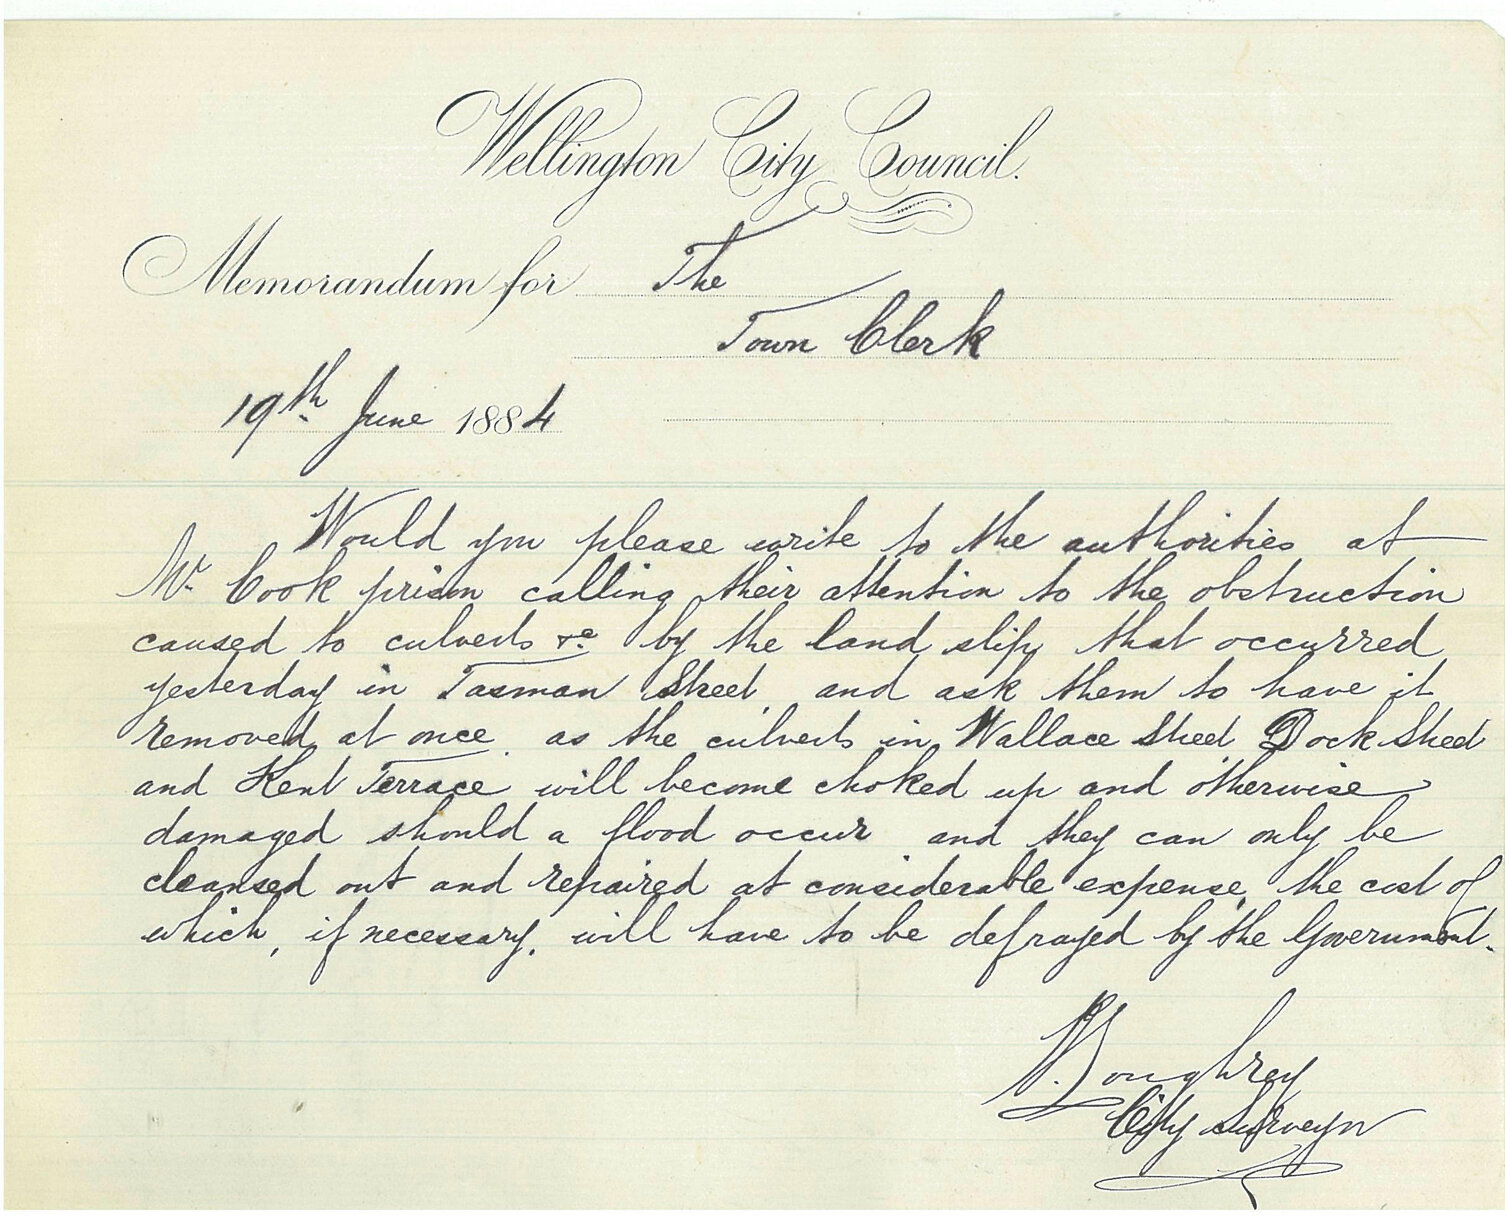 Wellington City Council.
Memorandum for The
Town Clerk
19th June 1884
Would you please write to the authorities at
Mt Cook prison calling their attention to the obstruction
caused to culverts &c. by the land slip that occurred
yesterday in Tasman Street, and ask them to have it
removed at once, as the culverts in Wallace Street, Dock Street
and Kent Terrace will become choked up and otherwise
damaged should a flood occur and they can only be
cleansed out and repaired at considerable expense, the cost of
which, if necessary, will have to be defrayed by the Government.
Loughrey
City Surveyor